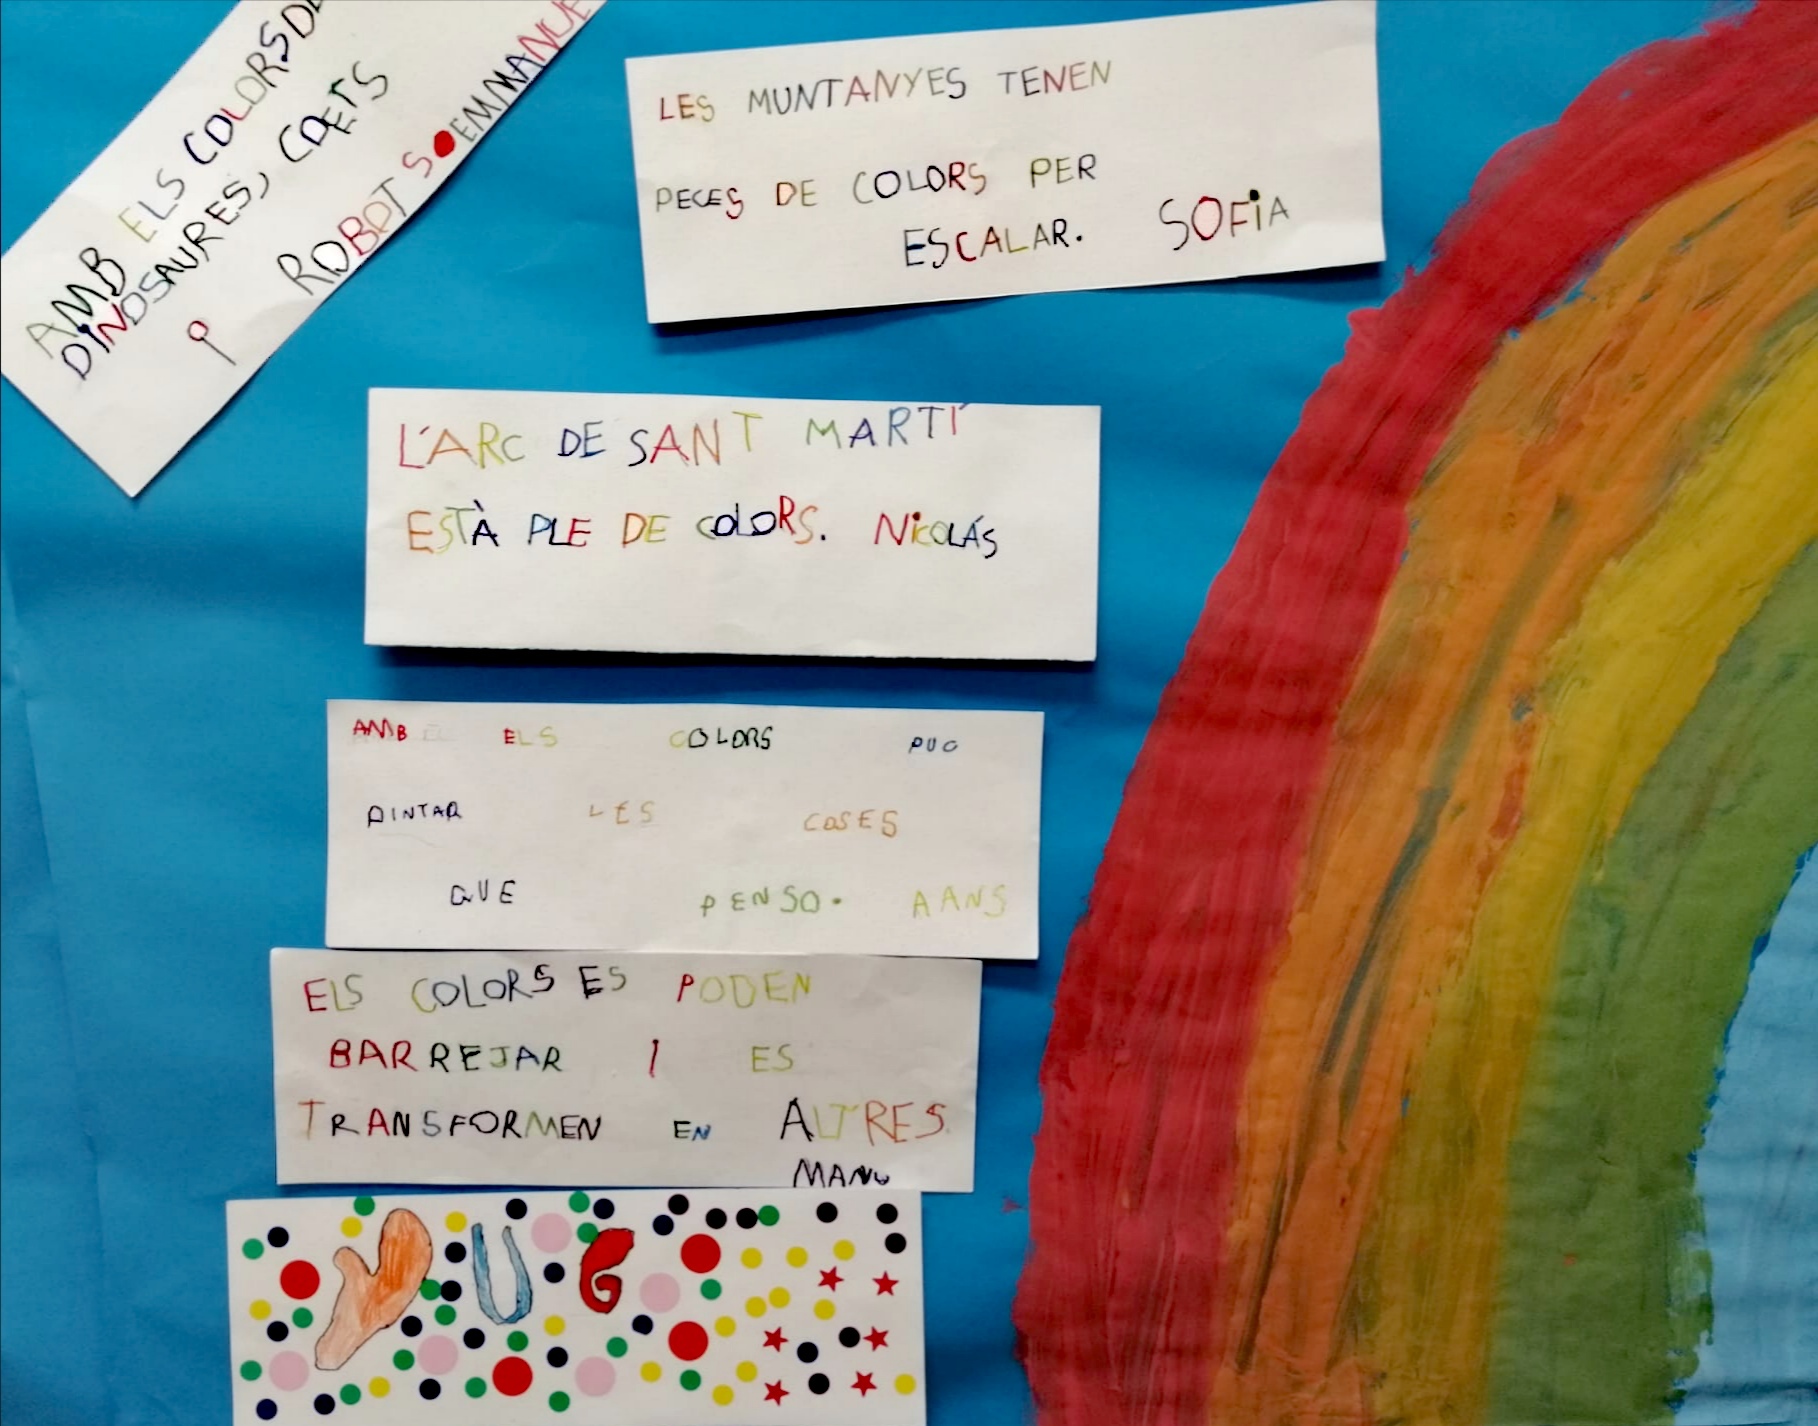 AMB ELS COLORS DE
DINOSAURES, COETS
I ROBOTS. EMMANUE
LES MUNTANYES TENEN
PECES DE COLORS PER
ESCALAR. SOFIA
L'ARC DE SANT MARTÍ
ESTÀ PLE DE COLORS. NICOLÁS
AMB ELS COLORS PUC
PINTAR LES COSES
QUE PENSO. AANS
ELS COLORS ES PODEN
BARREJAR I ES
TRANSFORMEN EN ALTRES.
MANU
YUG